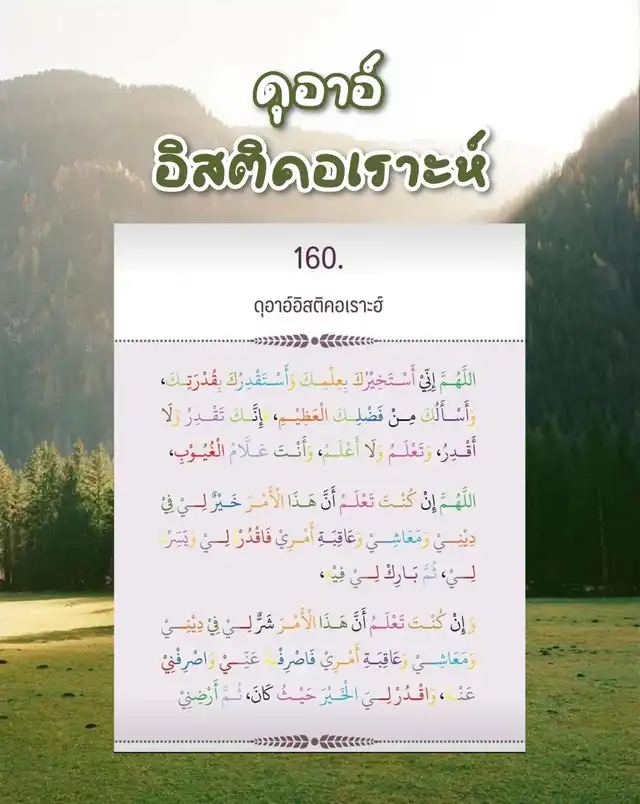 ดุอาอ์
อิสติคอเราะห์
160.
ดุอาอ์อิสติคอเราะฮ์
اللَّهُمَّ إِنِّيْ أَسْتَخِيْرُكَ بِعِلْمِكَ وَأَسْتَقْدِرُكَ بِقُدْرَتِكَ،
وَأَسْأَلُكَ مِنْ فَضْلِكَ الْعَظِيْمِ، فَإِنَّكَ تَقْدِرُ وَلَا
أَقْدِرُ، وَتَعْلَمُ وَلَا أَعْلَمُ، وَأَنْتَ عَلَّامُ الْغُيُوْبِ،
اللَّهُمَّ إِنْ كُنْتَ تَعْلَمُ أَنَّ هَذَا الْأَمْرَ خَيْرٌ لِيْ فِيْ
دِيْنِيْ وَمَعَاشِيْ وَعَاقِبَةِ أَمْرِيْ فَاقْدُرْهُ لِيْ وَيَسِّرْهُ
لِيْ، ثُمَّ بَارِكْ لِيْ فِيْهِ،
وَإِنْ كُنْتَ تَعْلَمُ أَنَّ هَذَا الْأَمْرَ شَرٌّ لِيْ فِيْ دِيْنِيْ
وَمَعَاشِيْ وَعَاقِبَةِ أَمْرِيْ فَاصْرِفْهُ عَنِّيْ وَاصْرِفْنِيْ
عَنْهُ، وَاقْدُرْ لِيَ الْخَيْرَ حَيْثُ كَانَ، ثُمَّ أَرْضِنِيْ